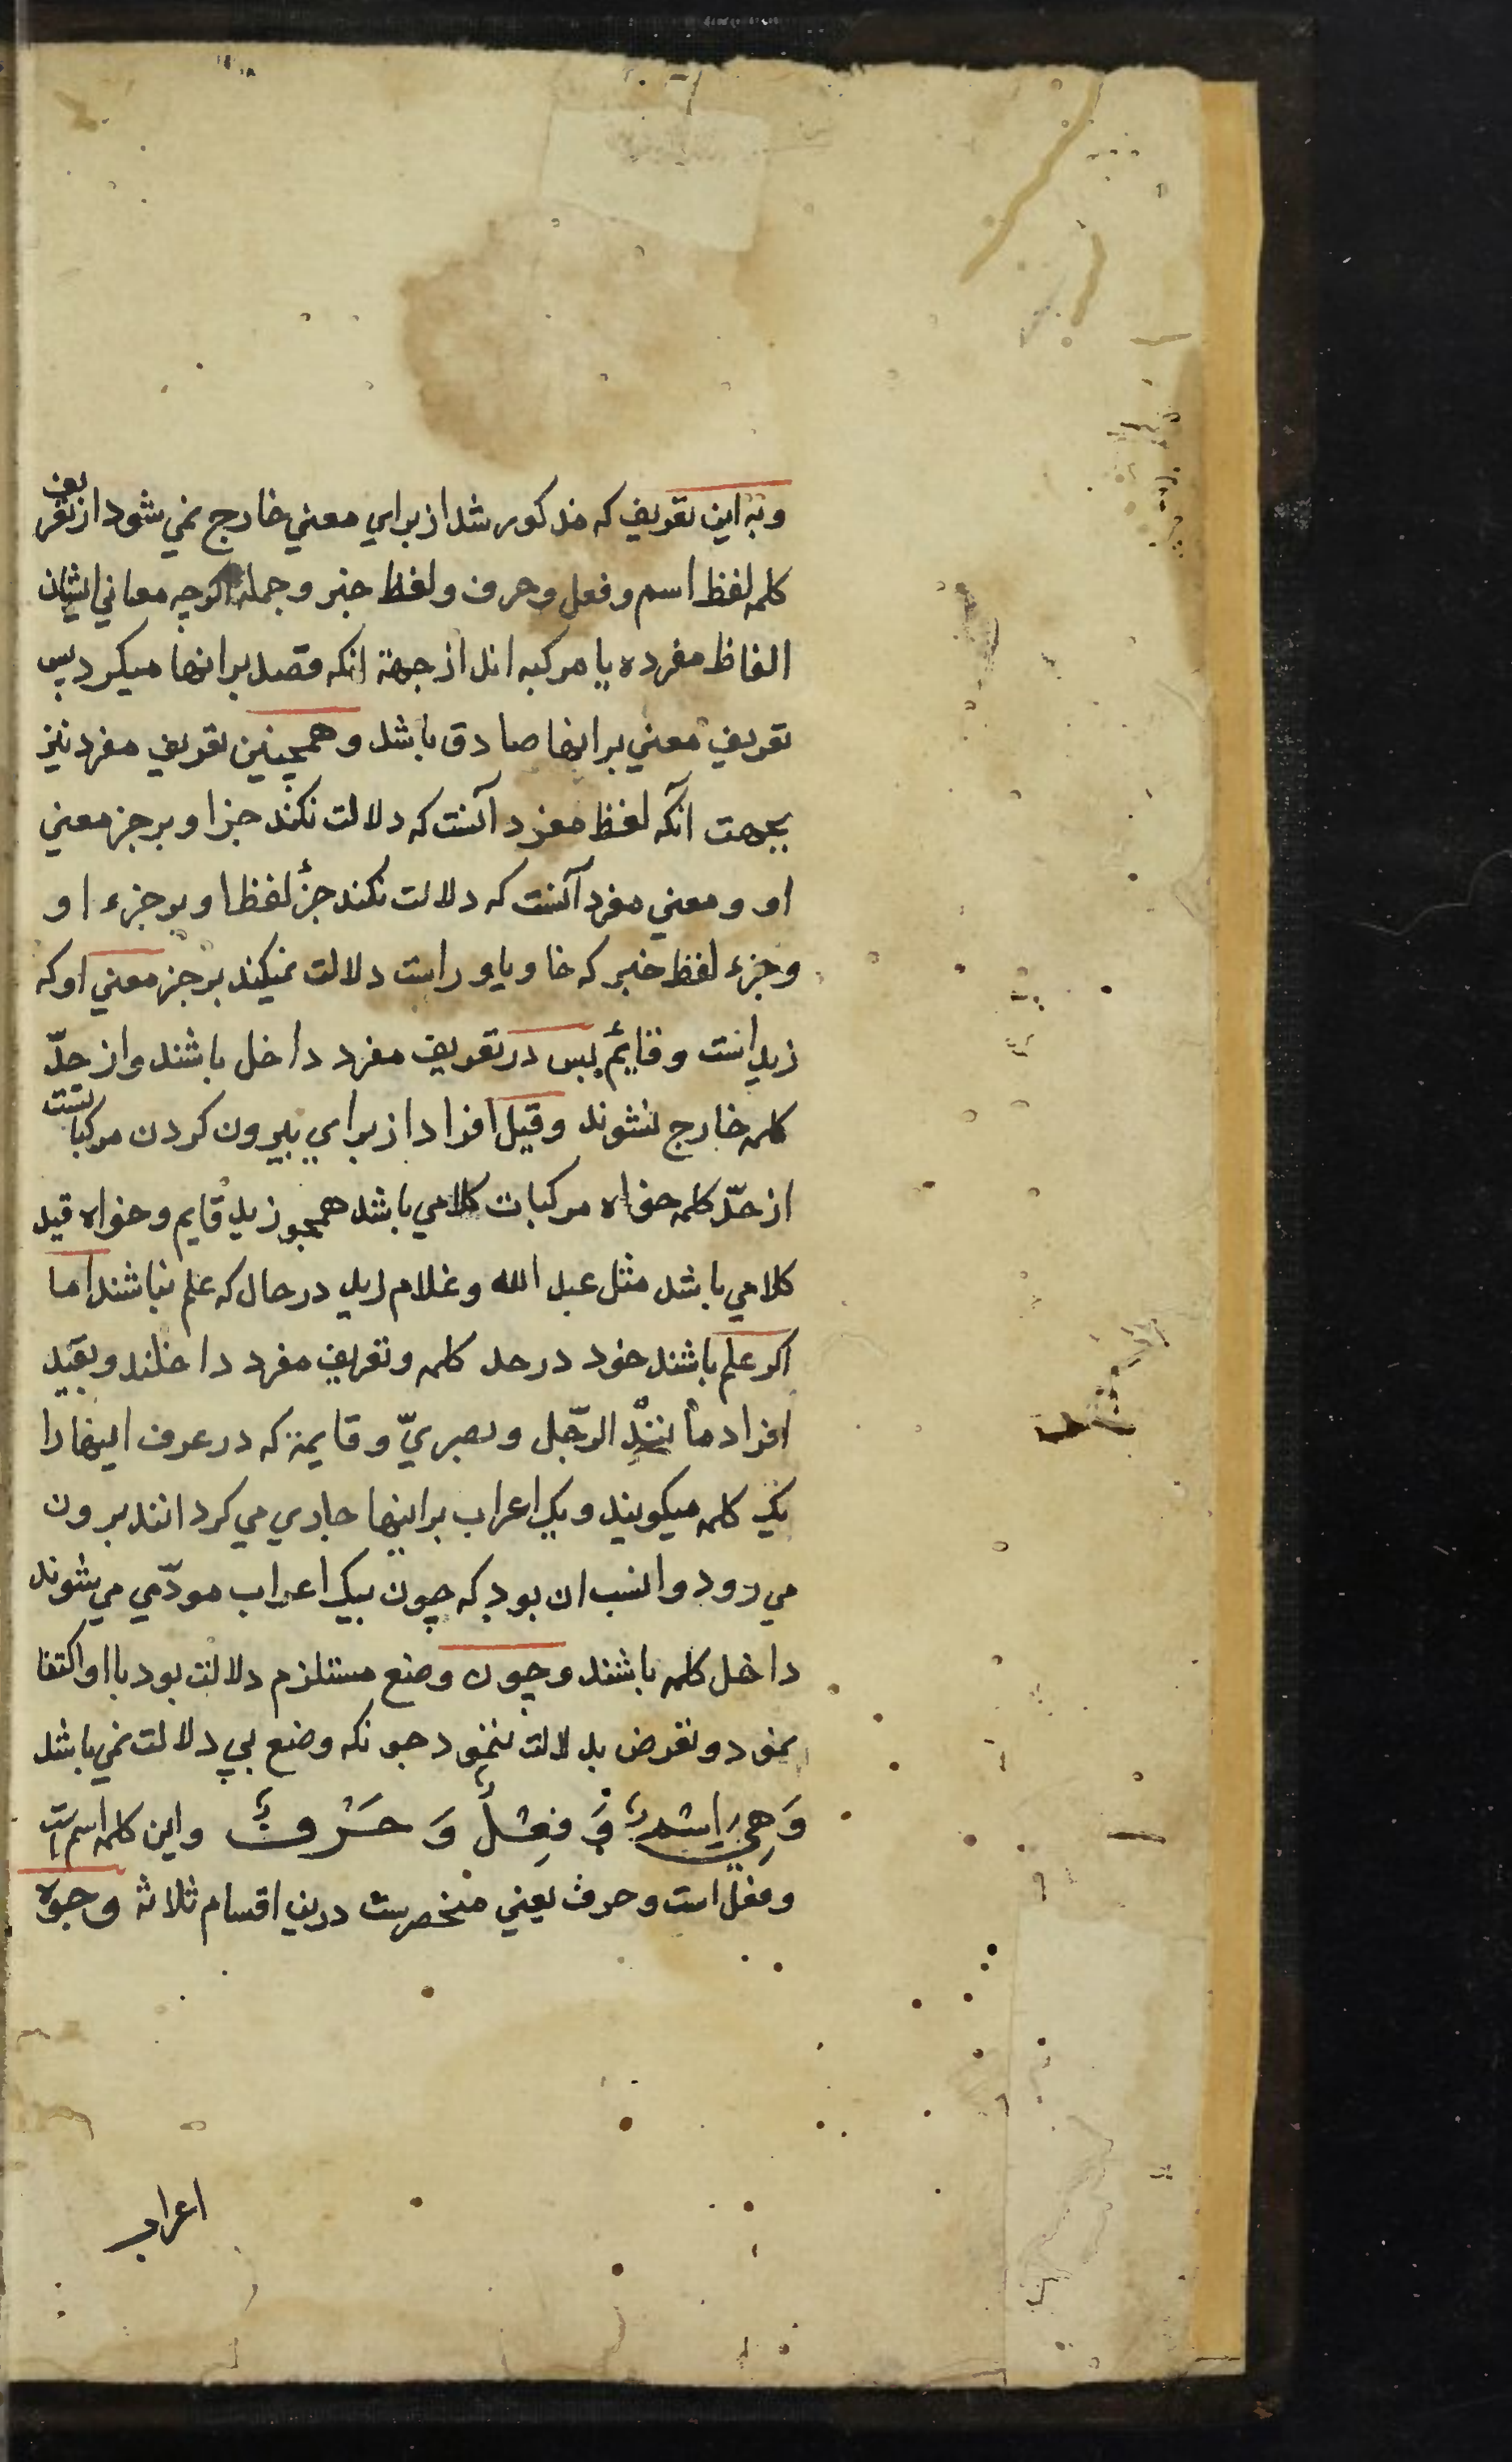 وبه این تعریف که مذکور شد از برای معنی خارج نمی شود از تعریف
کلمه لفظ اسم و فعل و حرف و لفظ خبر و جمله اکرچه معانی ایشان
الفاظ مفرده یا مرکبه اند از جهة انکه قصد بر انها میکرد پس
تعریف معنی بر انها صادق باشد و همچنین تعریف مفرد نیز
بجهت آنکه لفظ مفرد آنست که دلالت نکند جز او بر جز معنی
او و معنی مفرد آنست که دلالت نکند جزٔ لفظ او بر جزء او
وجزء لفظ خبر که خا و با و راست دلالت نمیکند بر جز معنی او که
زید است و قایم پس در تعریف مفرد داخل باشند و از حدّ
کلمه خارج نشوند و قیل افراد از برای بیرون کردن مرکباتست
از حدّ کلمه خواه مرکبات کلامی باشد همچو زید قایم و خواه قید
کلامی باشد مثل عبد الله و غلام زید در حال که علم نباشند اما
اکر علم باشند خود در حد کلمه و تعریف مفرد داخلند و بقید
افراد مانند الرّجل و بصریّ و قایمة که در عرف اینها را
یک کلمه میکویند و یک اعراب بر اینها جاری می کردانند برون
می رود و انسب ان بود که چون بیک اعراب مودّی می شوند
داخل کلمه باشند و چون وضع مستلزم دلالت بود با او اکتفا
نمود و تعرض بدلالت ننمود چونکه وضع بی دلالت نمی باشد
وَهِيَ اِسْمٌ وَ فِعْلٌ وَ حَرْفٌ واین کلمه اسم است
و فعل است و حرف یعنی منحصرست درین اقسام ثلاثه وجوه
اعراب